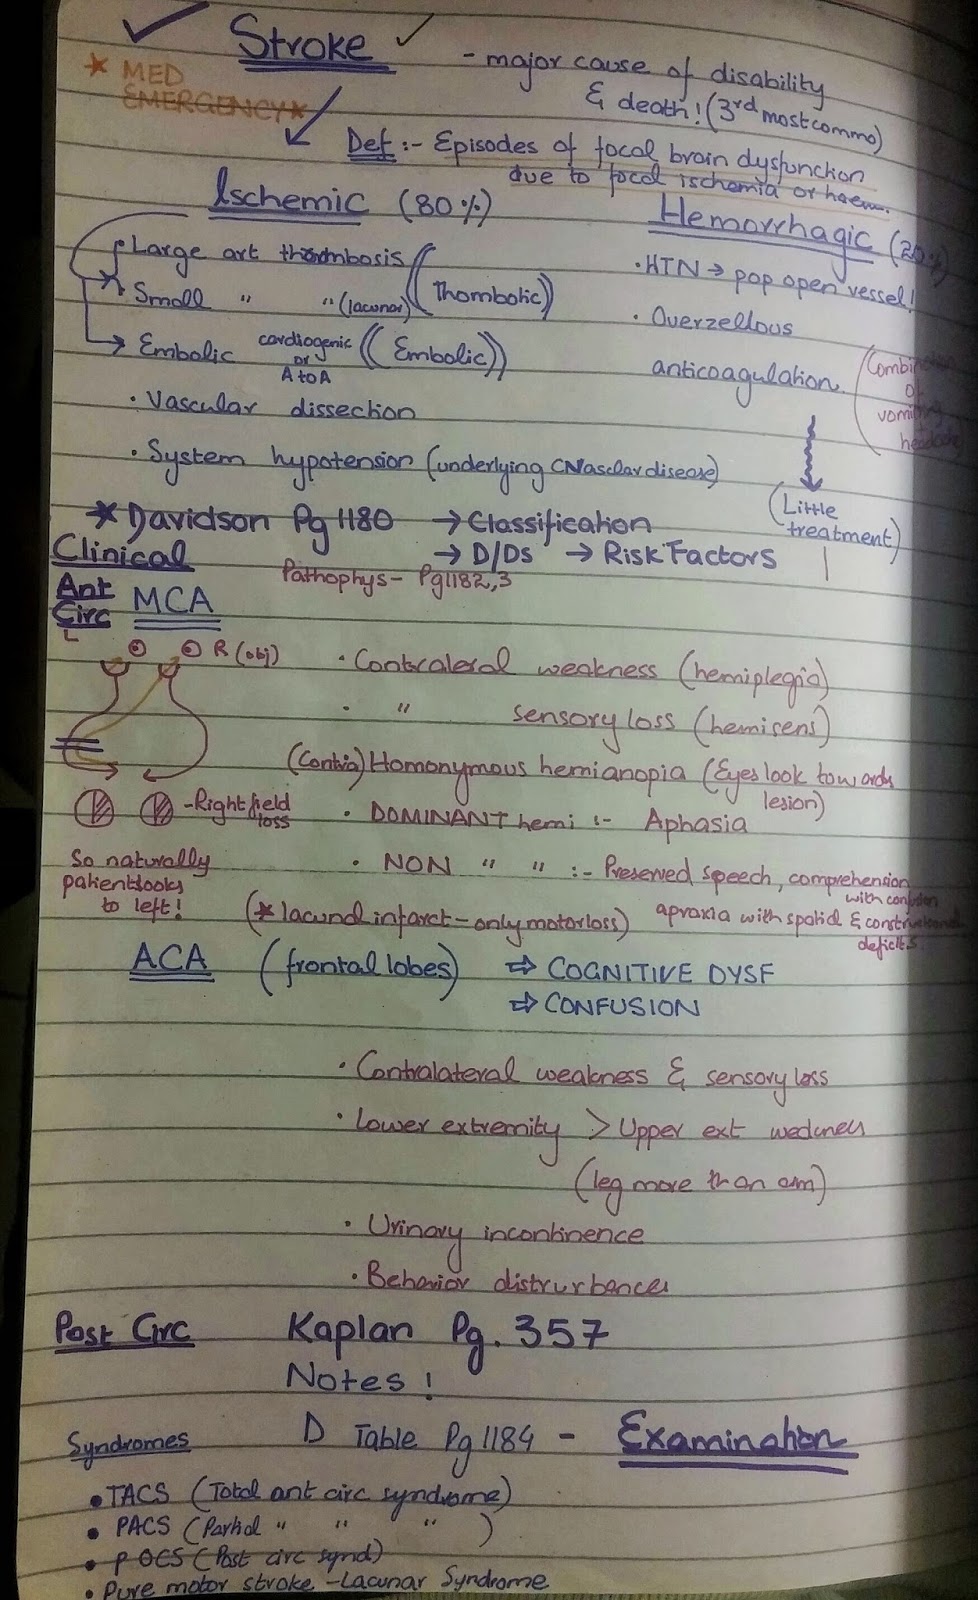 Stroke
- major cause of disability
& death! (3rd most commo)
* MED
EMERGENCY *
Def :- Episodes of focal brain dysfunction
due to focal ischemia or haem.
Ischemic (80%)
Large art thrombosis
Small " " (lacunar)
(Thombolic)
Embolic cardiogenic
or
A to A
((Embolic))
· Vascular dissection
· System hypotension (underlying CVascular disease)
Hemorrhagic (20%)
· HTN → pop open vessel!
· Overzellous
anticoagulation
(Combination
of
vomiting
headache
(Little
treatment)
* Davidson Pg 1180 → Classification
→ D/Ds → Risk Factors
Pathophys - Pg 1182,3
Clinical
Ant
Circ
MCA
L
R (obj)
- Right field
loss
So naturally
patient looks
to left!
· Contralateral weakness (hemiplegia)
· " sensory loss (hemisens)
(Contra) Homonymous hemianopia (Eyes look towards
lesion)
· DOMINANT hemi :- Aphasia
· NON " " :- Preserved speech, comprehension
with confusion
apraxia with spatial & constructional
deficits
(* lacunal infarct - only motor loss)
ACA (frontal lobes) ⇒ COGNITIVE DYSF
⇒ CONFUSION
· Contralateral weakness & sensory loss
· Lower extremity > Upper ext weakness
(leg more than arm)
· Urinary incontinence
· Behavior distrurbances
Post Circ Kaplan Pg. 357
Notes!
D Table Pg 1184 - Examination
Syndromes
• TACS (Total ant circ syndrome)
• PACS (Partial " " ")
• POCS (Post circ synd)
• Pure motor stroke - Lacunar Syndrome